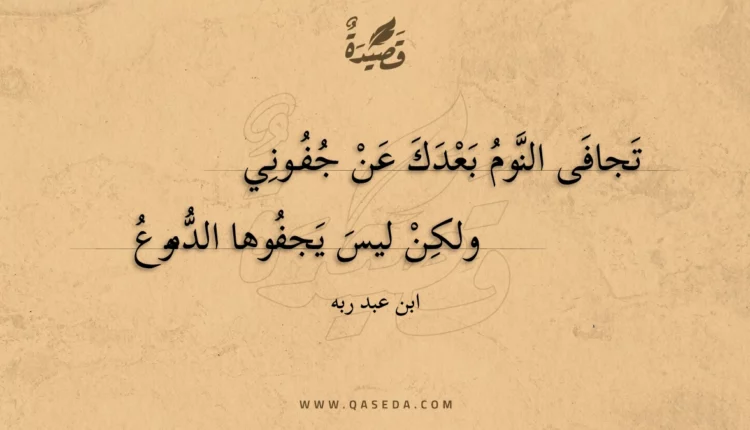 قَصِيْدَةٌ
تَجافَى النَّومُ بَعْدَكَ عَنْ جُفُونِي
ولكِنْ ليسَ يَجفُوها الدُّموعُ
ابن عبد ربه
WWW.QASEDA.COM